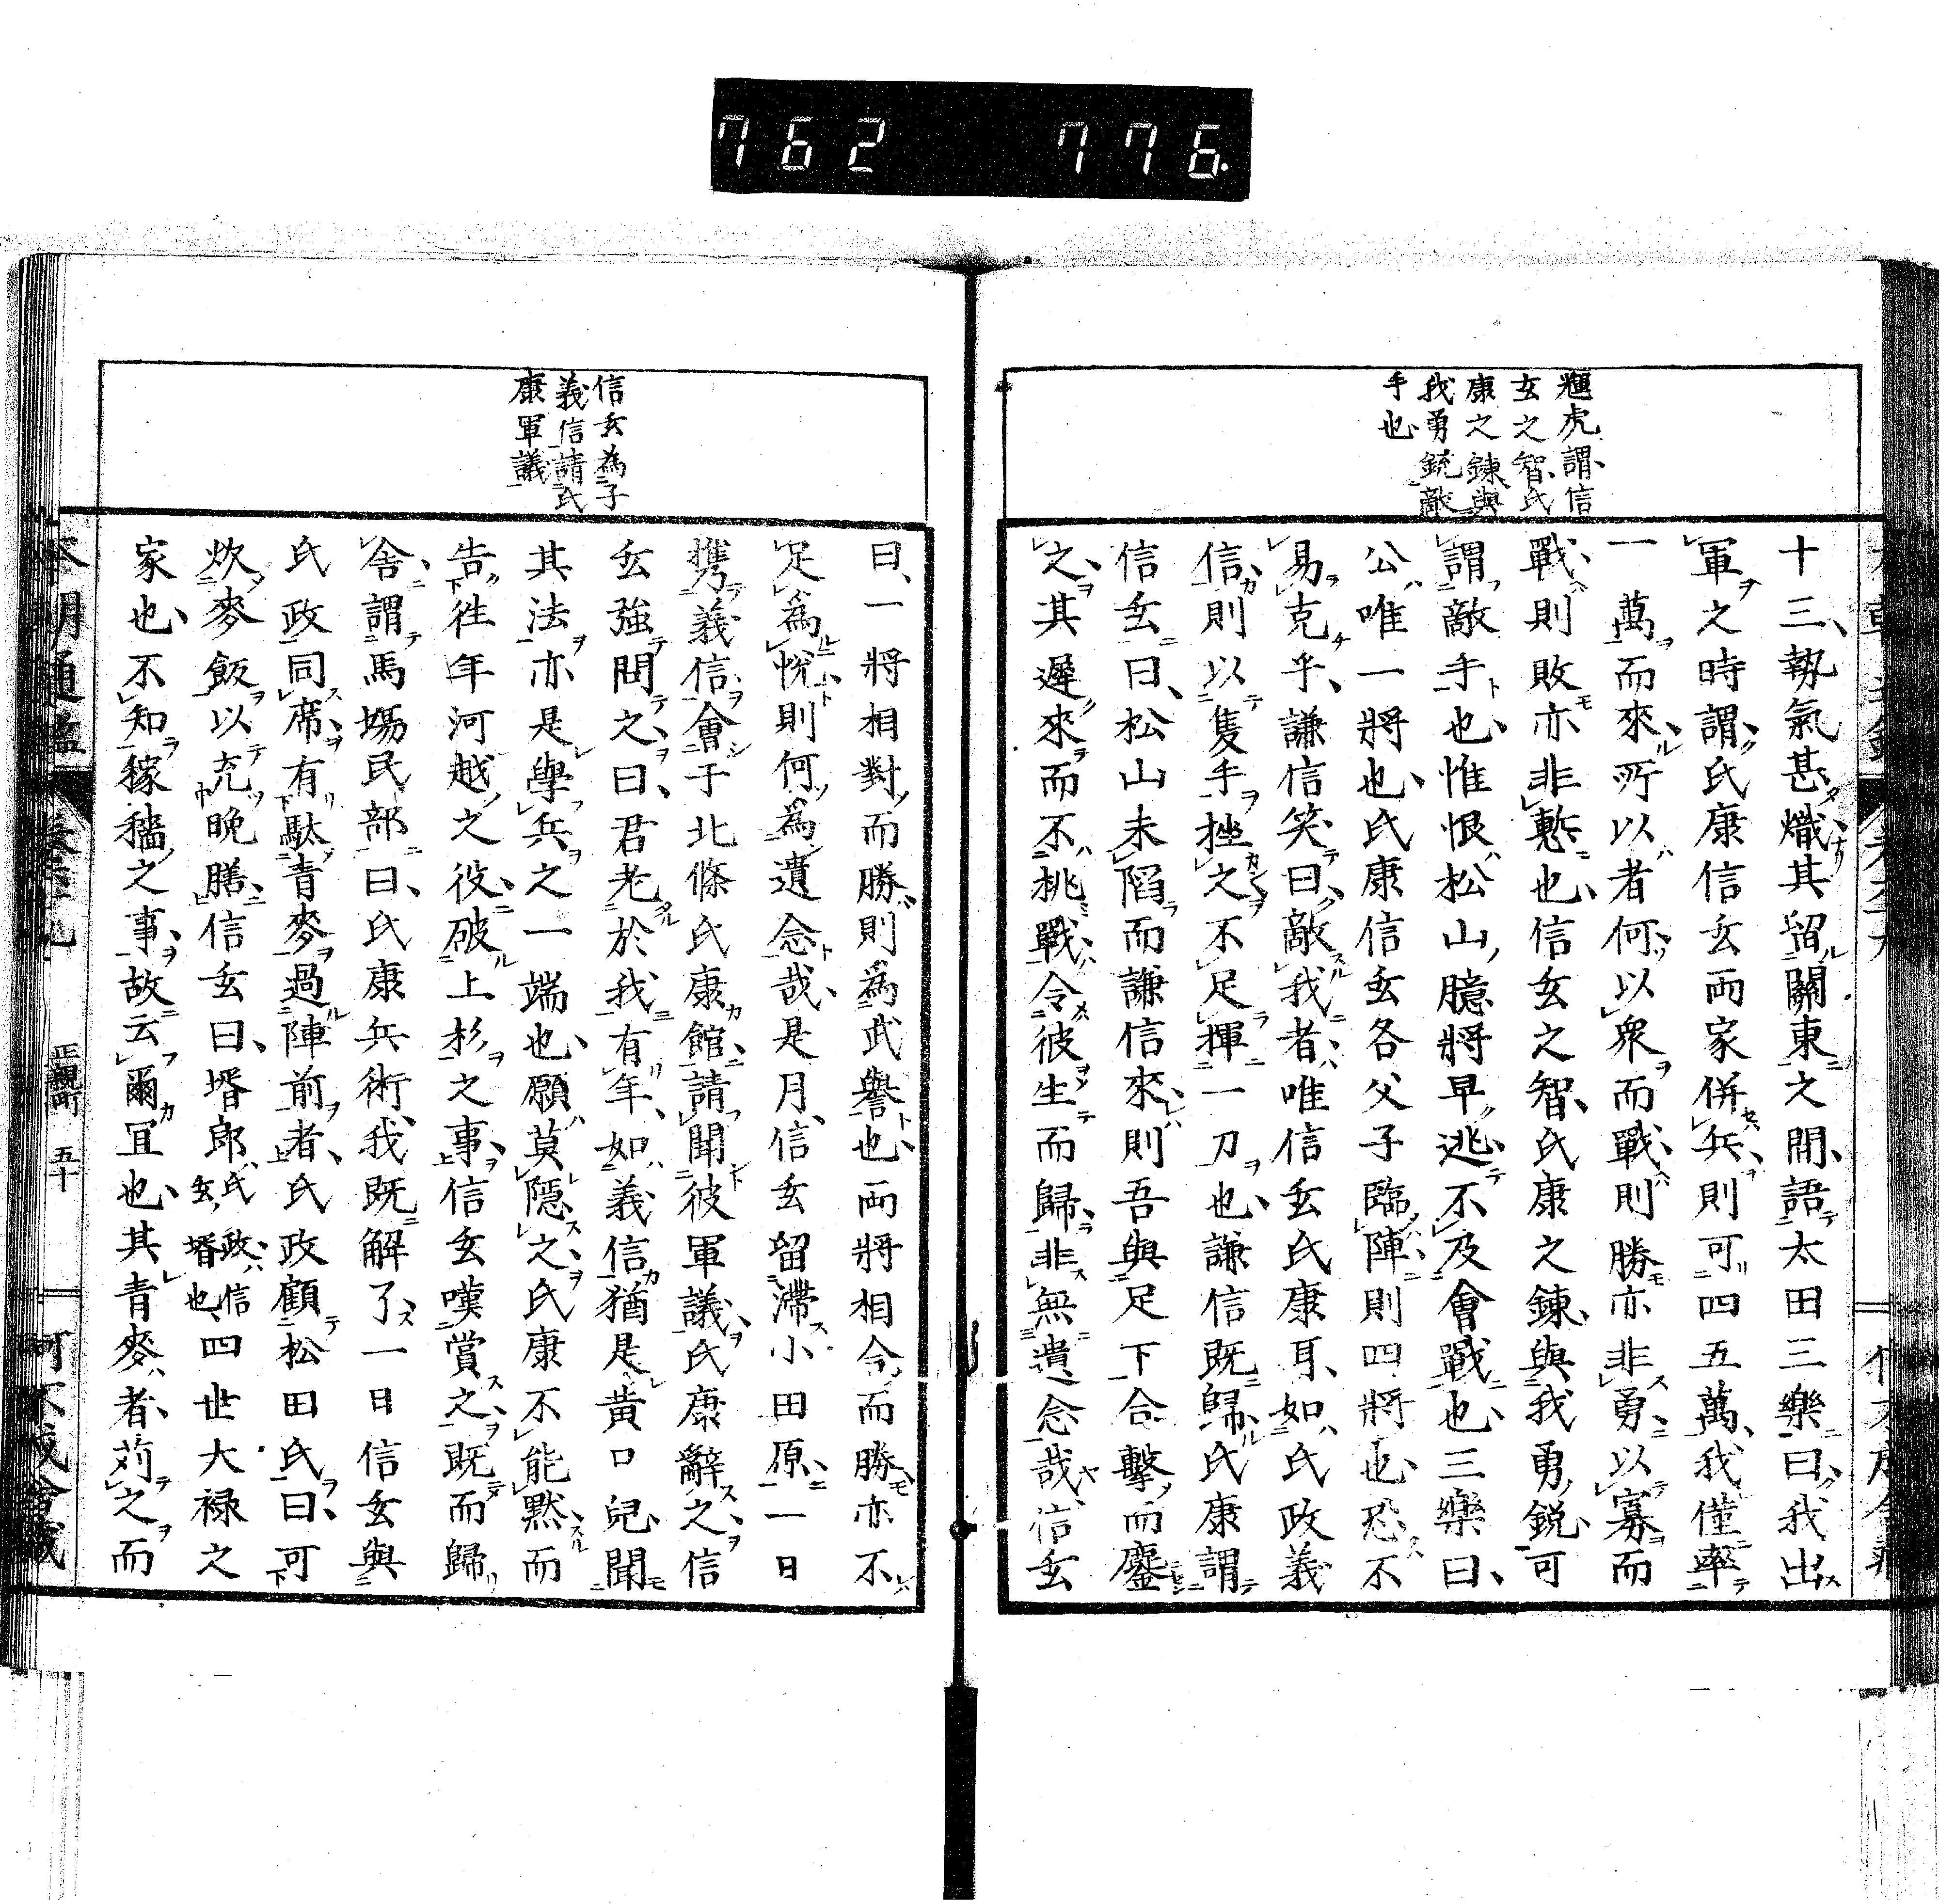 762 776.
輝虎謂信
玄之智氏
康之錬與
我勇銃敵
手也
十三執氣甚熾其留關東之間語太田三樂曰我出
軍之時謂氏康信玄兩家併兵則可四五萬我僅率
一萬而來所以者何以衆而戰則勝亦非勇以寡而
戰則敗亦非慙也信玄之智氏康之錬與我勇鋭可
謂敵手也惟恨松山臆將早逃不及會戰也三樂曰
公唯一將也氏康信玄各父子臨陣則四將也恐不
易克乎謙信笑曰敵我者唯信玄氏康耳如氏政義
信則以隻手挫之不足揮一刀也謙信既歸氏康謂
信玄曰松山未陷而謙信來則吾與足下合擊而鏖
之其遲來而不挑戰令彼生而歸非無遺念哉信玄
信玄為子
義信請氏
康軍議
曰一將相對而勝則爲武譽也兩將相合而勝亦不
足爲悅則何爲遺念哉是月信玄留滯小田原一日
携義信會于北條氏康館請聞彼軍議氏康辭之信
玄強問之曰君老於我有年如義信猶是黃口兒聞
其法亦是學兵之一端也願莫隱之氏康不能默而
告往年河越之役破上杉之事信玄嘆賞之既而歸
舎謂馬塲民部曰氏康兵術我既解了一日信玄與
氏政同席有駄青麥過陣前者氏政顧松田氏曰可
炊麥飯以充晩膳信玄曰壻郎氏政信玄壻也四世大祿之
家也不知稼穡之事故云爾冝也其青麥者苅之而
本朝通鑑 正親町 五十